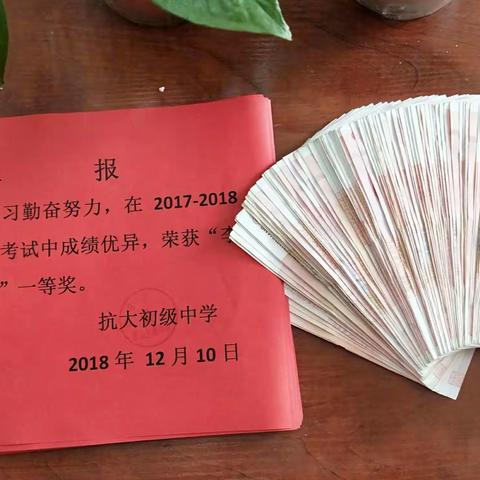 报
习勤奋努力，在 2017-2018
考试中成绩优异，荣获“李
”一等奖。
抗大初级中学
2018 年 12 月 10 日